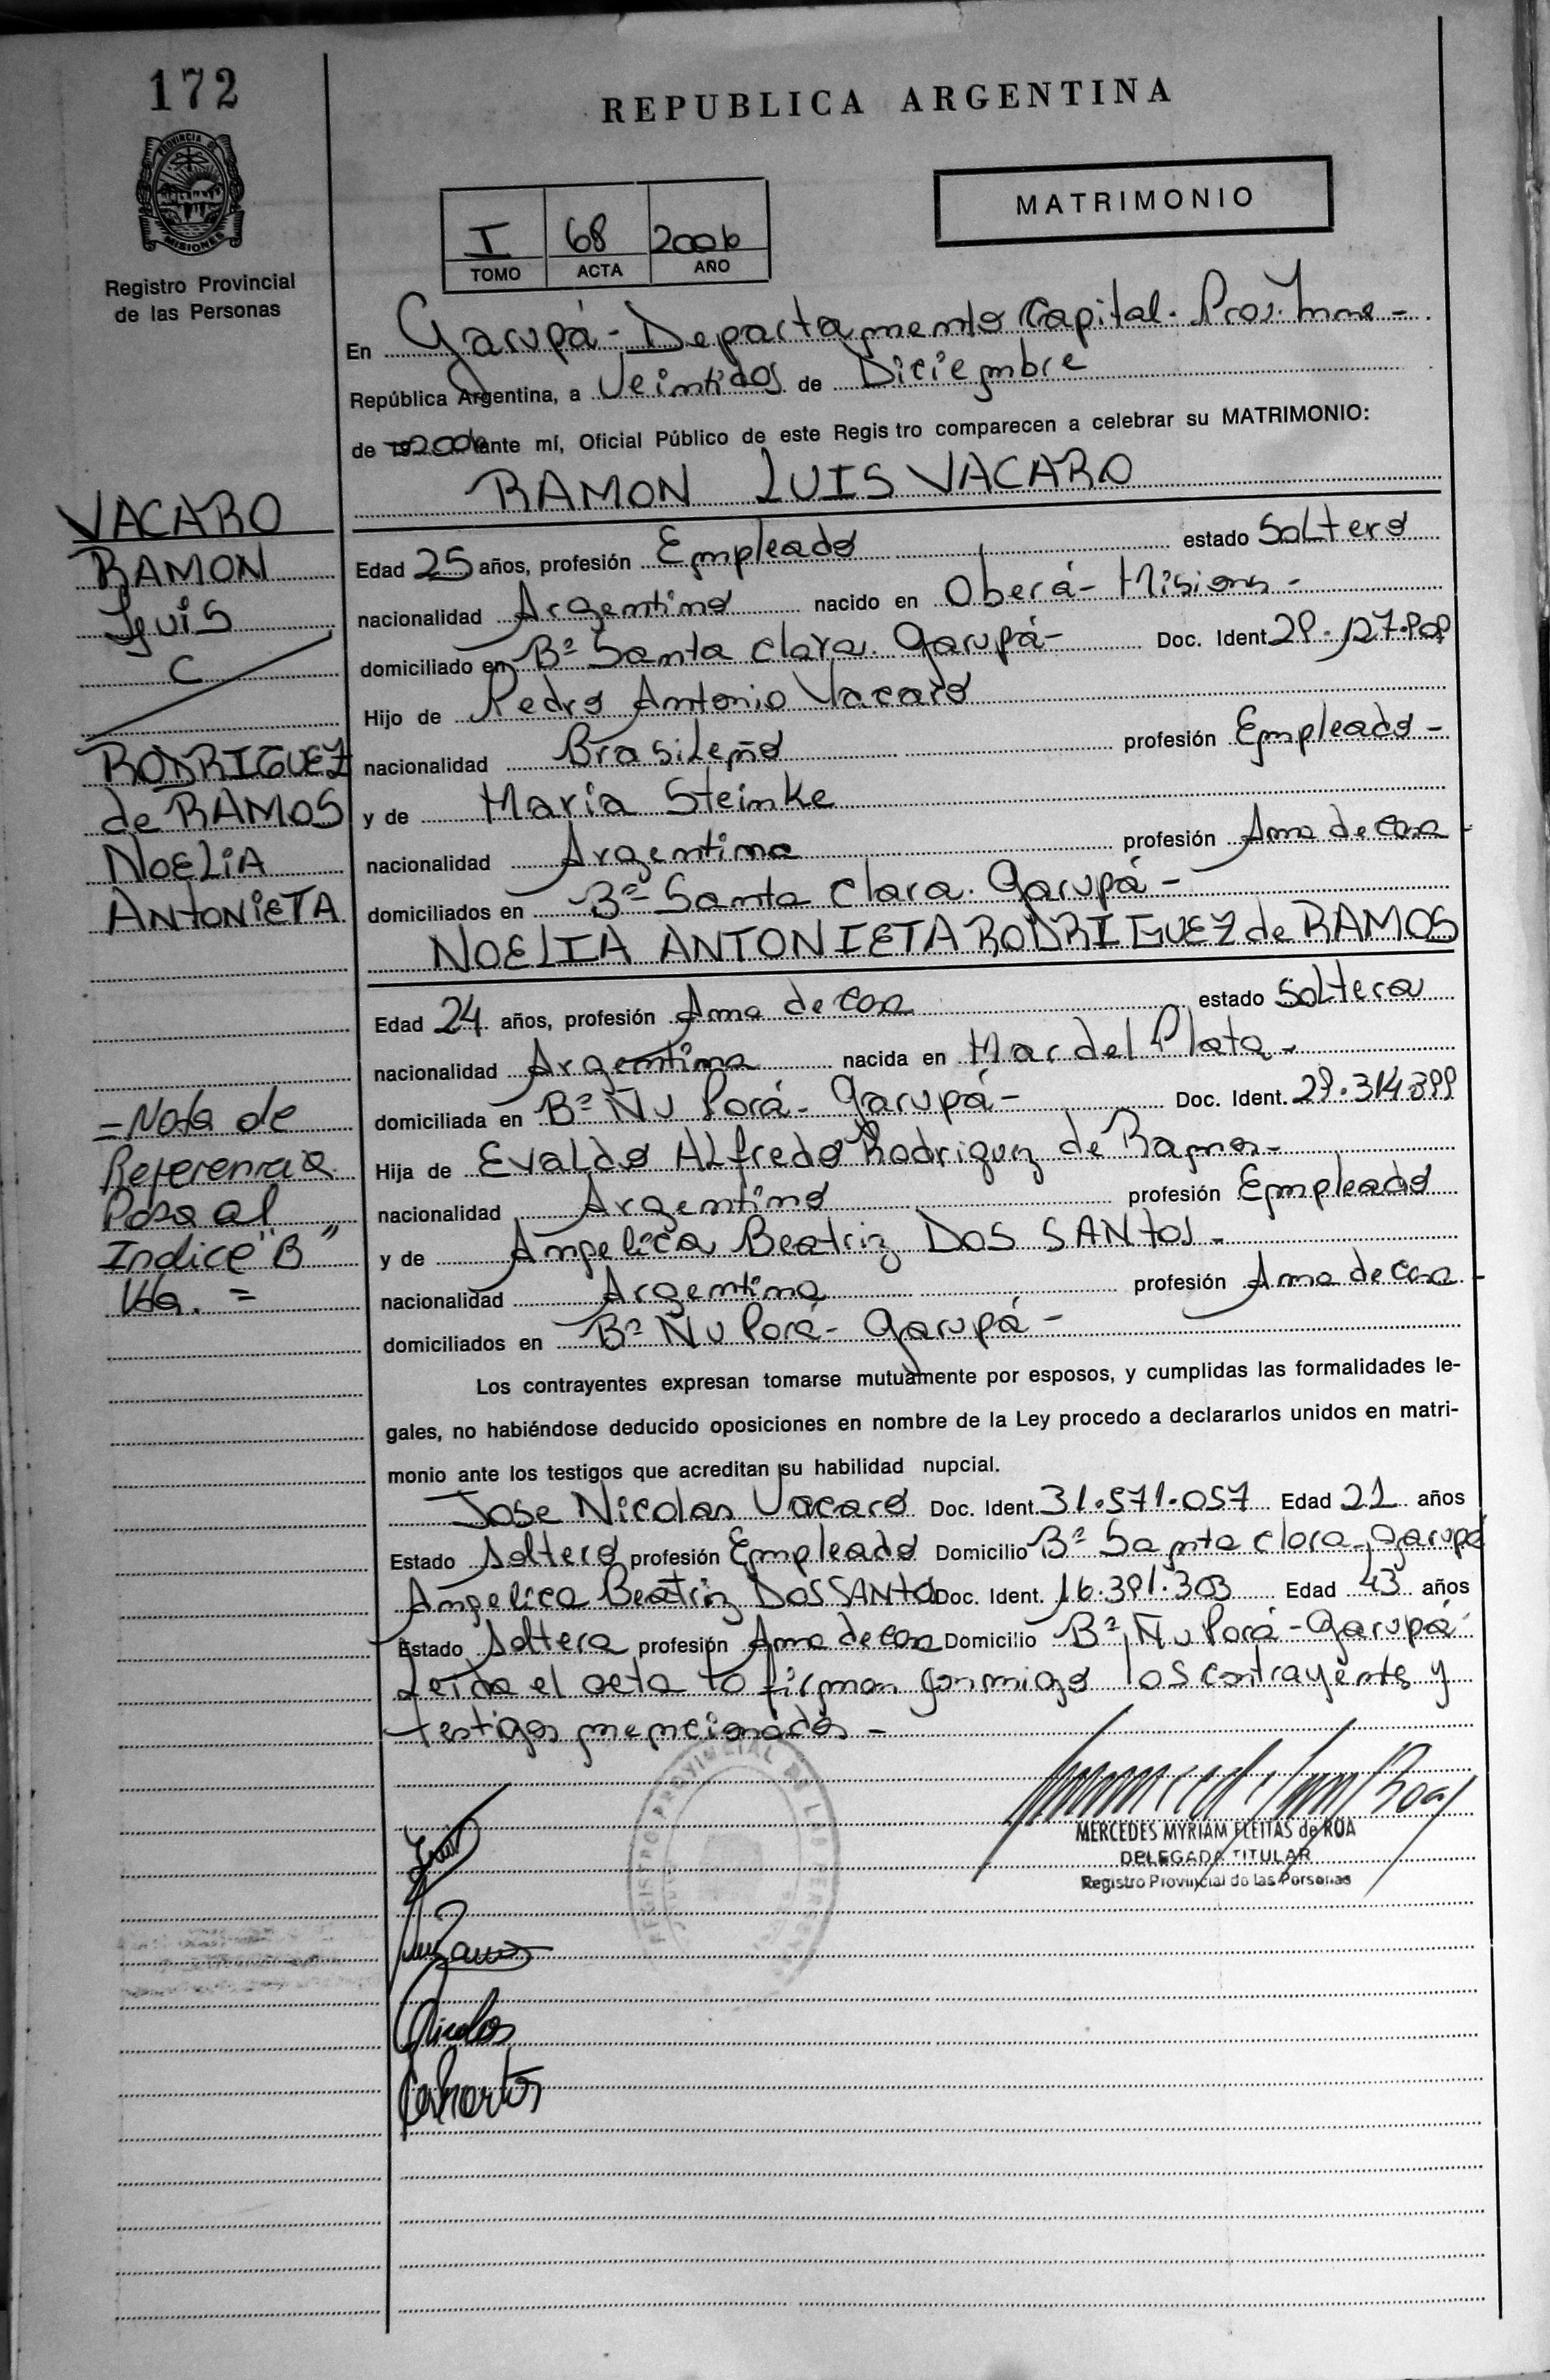 172
REPUBLICA ARGENTINA
PROVINCIA DE MISIONES
Registro Provincial
de las Personas
I 68 2006
TOMO ACTA AÑO
MATRIMONIO
En Garupá - Departamento Capital - Prov.
República Argentina, a Veintidos de Diciembre
de 2006 ante mí, Oficial Público de este Registro comparecen a celebrar su MATRIMONIO:
RAMON LUIS VACARO
VACARO
RAMON
Luis
C
RODRIGUEZ
de RAMOS
NOELIA
ANTONIETA
Edad 25 años, profesión Empleado estado Soltero
nacionalidad Argentino nacido en Oberá - Misiones -
domiciliado en Bº Santa Clara. Garupá - Doc. Ident.
Hijo de Pedro Antonio Vacaro
nacionalidad Brasileño profesión Empleado -
y de Maria Steinke
nacionalidad Argentina profesión Ama de casa -
domiciliados en Bº Santa Clara. Garupá -
NOELIA ANTONIETA RODRIGUEZ de RAMOS
Edad 24 años, profesión Ama de casa estado Soltera
nacionalidad Argentina nacida en Mar del Plata -
domiciliada en Bº Ñu Porá - Garupá - Doc. Ident. 29.314.899
Hija de Evaldo Alfredo Rodriguez de Ramos -
nacionalidad Argentino profesión Empleado
y de Angelica Beatriz DOS SANTOS -
nacionalidad Argentina profesión Ama de casa -
domiciliados en Bº Ñu Porá - Garupá -
= Nota de
Referencia
Pasa al
Indice "B"
Vta. =
Los contrayentes expresan tomarse mutuamente por esposos, y cumplidas las formalidades le-
gales, no habiéndose deducido oposiciones en nombre de la Ley procedo a declararlos unidos en matri-
monio ante los testigos que acreditan su habilidad nupcial.
Jose Nicolas Vacaro Doc. Ident. 31.571.057 Edad 21 años
Estado Soltero profesión Empleado Domicilio Bº Santa Clara - Garupá
Angelica Beatriz DOS SANTOS Doc. Ident. 16.391.303 Edad 43 años
Estado Soltera profesión Ama de casa Domicilio Bº Ñu Porá - Garupá -
Leida el acta lo firman conmigo los contrayentes y
testigos mencionados -
REGISTRO PROVINCIAL DE LAS PERSONAS
MERCEDES MYRIAM FLEITAS de ROA
DELEGADA TITULAR
Registro Provincial de las Personas